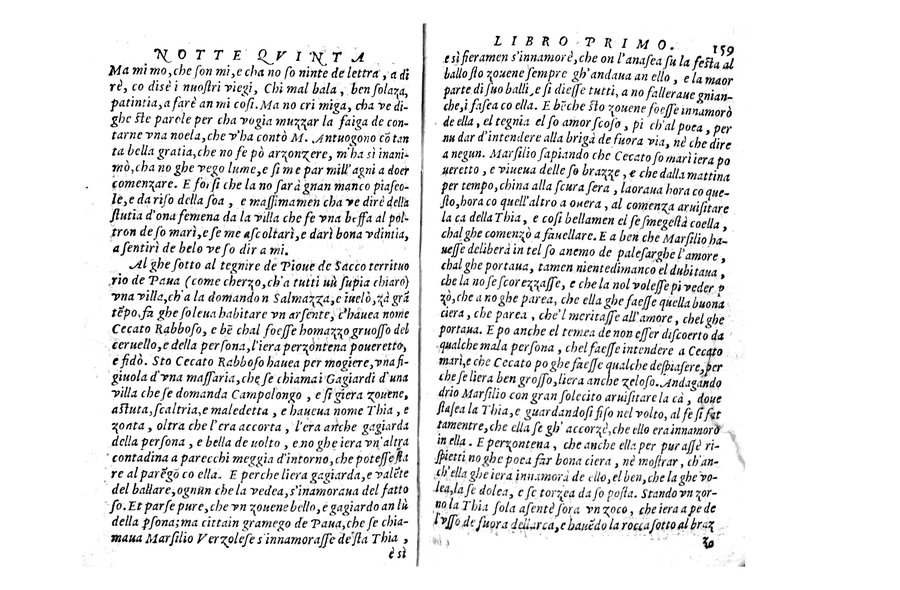 NOTTE QVINTA
Ma mi mo, che son mi, e cha no so ninte de lettra, a di
rè, co disè i nuostri viegi, Chi mal bala, ben solaza,
patintia, a farè an mi cosi. Ma no cri miga, cha ve di-
ghe ste parole per cha vogia muzzar la faiga de con-
tarne vna noela, che v'ha contò M. Antuogono cõ tan
ta bella gratia, che no se pò arzonzere, m'ha sì inani-
mò, cha no ghe vego lume, e si me par mill'agni a doer
comenzare. E forsi che la no sarà gnan manco piaseo-
le, e da riso della soa, e massimamen cha ve dirè della
stutia d'ona femena da la villa che fe vna beffa al pol-
tron de so marì, e se me ascoltarì, e darì bona vdintia,
a sentirì de belo ve so dir a mi.
Al ghe sotto al tegnire de Pioue de Sacco territuo
rio de Paua (come cherzo, ch'a tutti uù supia chiaro)
vna villa, ch'a la domandon Salmazza, e iuelò, zà grã
tẽpo, fa ghe soleua habitare vn arsente, c'hauea nome
Cecato Rabboso, e bẽ chal foesse homazzo gruosso del
ceruello, e della persona, l'iera perzontena poueretto,
e fidò. Sto Cecato Rabboso hauea per mogiere, vna fi-
giuola d'vna massaria, che se chiamaì Gagiardi d'una
villa che se domanda Campolongo, e si giera zouene,
astuta, scaltria, e maledetta, e haueua nome Thia, e
zonta, oltra che l'era accorta, l'era anche gagiarda
della persona, e bella de uolto, e no ghe iera vn'altra
contadina a parecchi meggia d'intorno, che potesse sta
re al parẽgò co ella. E perche liera gagiarda, e valẽte
del ballare, ognun che la vedea, s'inamoraua del fatto
so. Et parse pure, che vn zouene bello, e gagiardo an lù
della psona; ma cittain gramego de Paua, che se chia-
maua Marsilio Verzolese s'innamorasse de sta Thia,
è sì
LIBRO PRIMO. 159
e sì fieramen s'innamorè, che on l'anasea su la festa al
ballo sto zouene sempre gh'andaua an ello, e la maor
parte di suo balli, e si diesse tutti, a no falleraue gnian-
che, i fasea co ella. E bẽche sto zouene foesse innamorò
de ella, e tegnia el so amor scoso, pi ch'al poea, per
nu dar d'intendere alla brigà de fuora via, nè che dire
a negun. Marsilio sapiando che Cecato so marì iera po
ueretto, e viueua delle so brazze, e che dalla mattina
per tempo, china alla scura sera, laoraua hora co que-
sto, hora co quell'altro a ouera, al comenza aruisitare
la ca della Thia, e così bellamen el se smegestà co ella,
chal ghe comenzò a fauellare. E a ben che Marsilio ha-
uesse deliberà in tel so anemo de palesarghe l'amore,
chal ghe portaua, tamen nientedimanco el dubitaua,
che la no se scorezzasse, e che la nol volesse pi veder p
zò, che a no ghe parea, che ella ghe faesse quella buona
ciera, che parea, che'l meritasse all'amore, chel ghe
portaua. E po anche el temea de non esser discoerto da
qualche mala persona, chel faesse intendere a Cecato
marì, e che Cecato po ghe faesse qualche despiasere, per
che se liera ben grosso, liera anche zeloso. Andagando
drio Marsilio con gran solecito aruisitare la cà, doue
stasea la Thia, e guardandosi fiso nel volto, al fe si fat
tamentre, che ella se gh'accorzè, che ello era innamorò
in ella. E perzontena, che anche ella per pur assè ri-
spietti no ghe poea far bona ciera, nè mostrar, ch'an-
ch'ella ghe iera innamorà de ello, el ben, che la ghe vo-
lea, la se dolea, e se torzea da so posta. Stando vn zor-
no la Thia sola asentè fora vn zoco, che iera a pe de
l'vsso de fuora dell'arca, e hauẽdo la rocca sotto al braz
zo